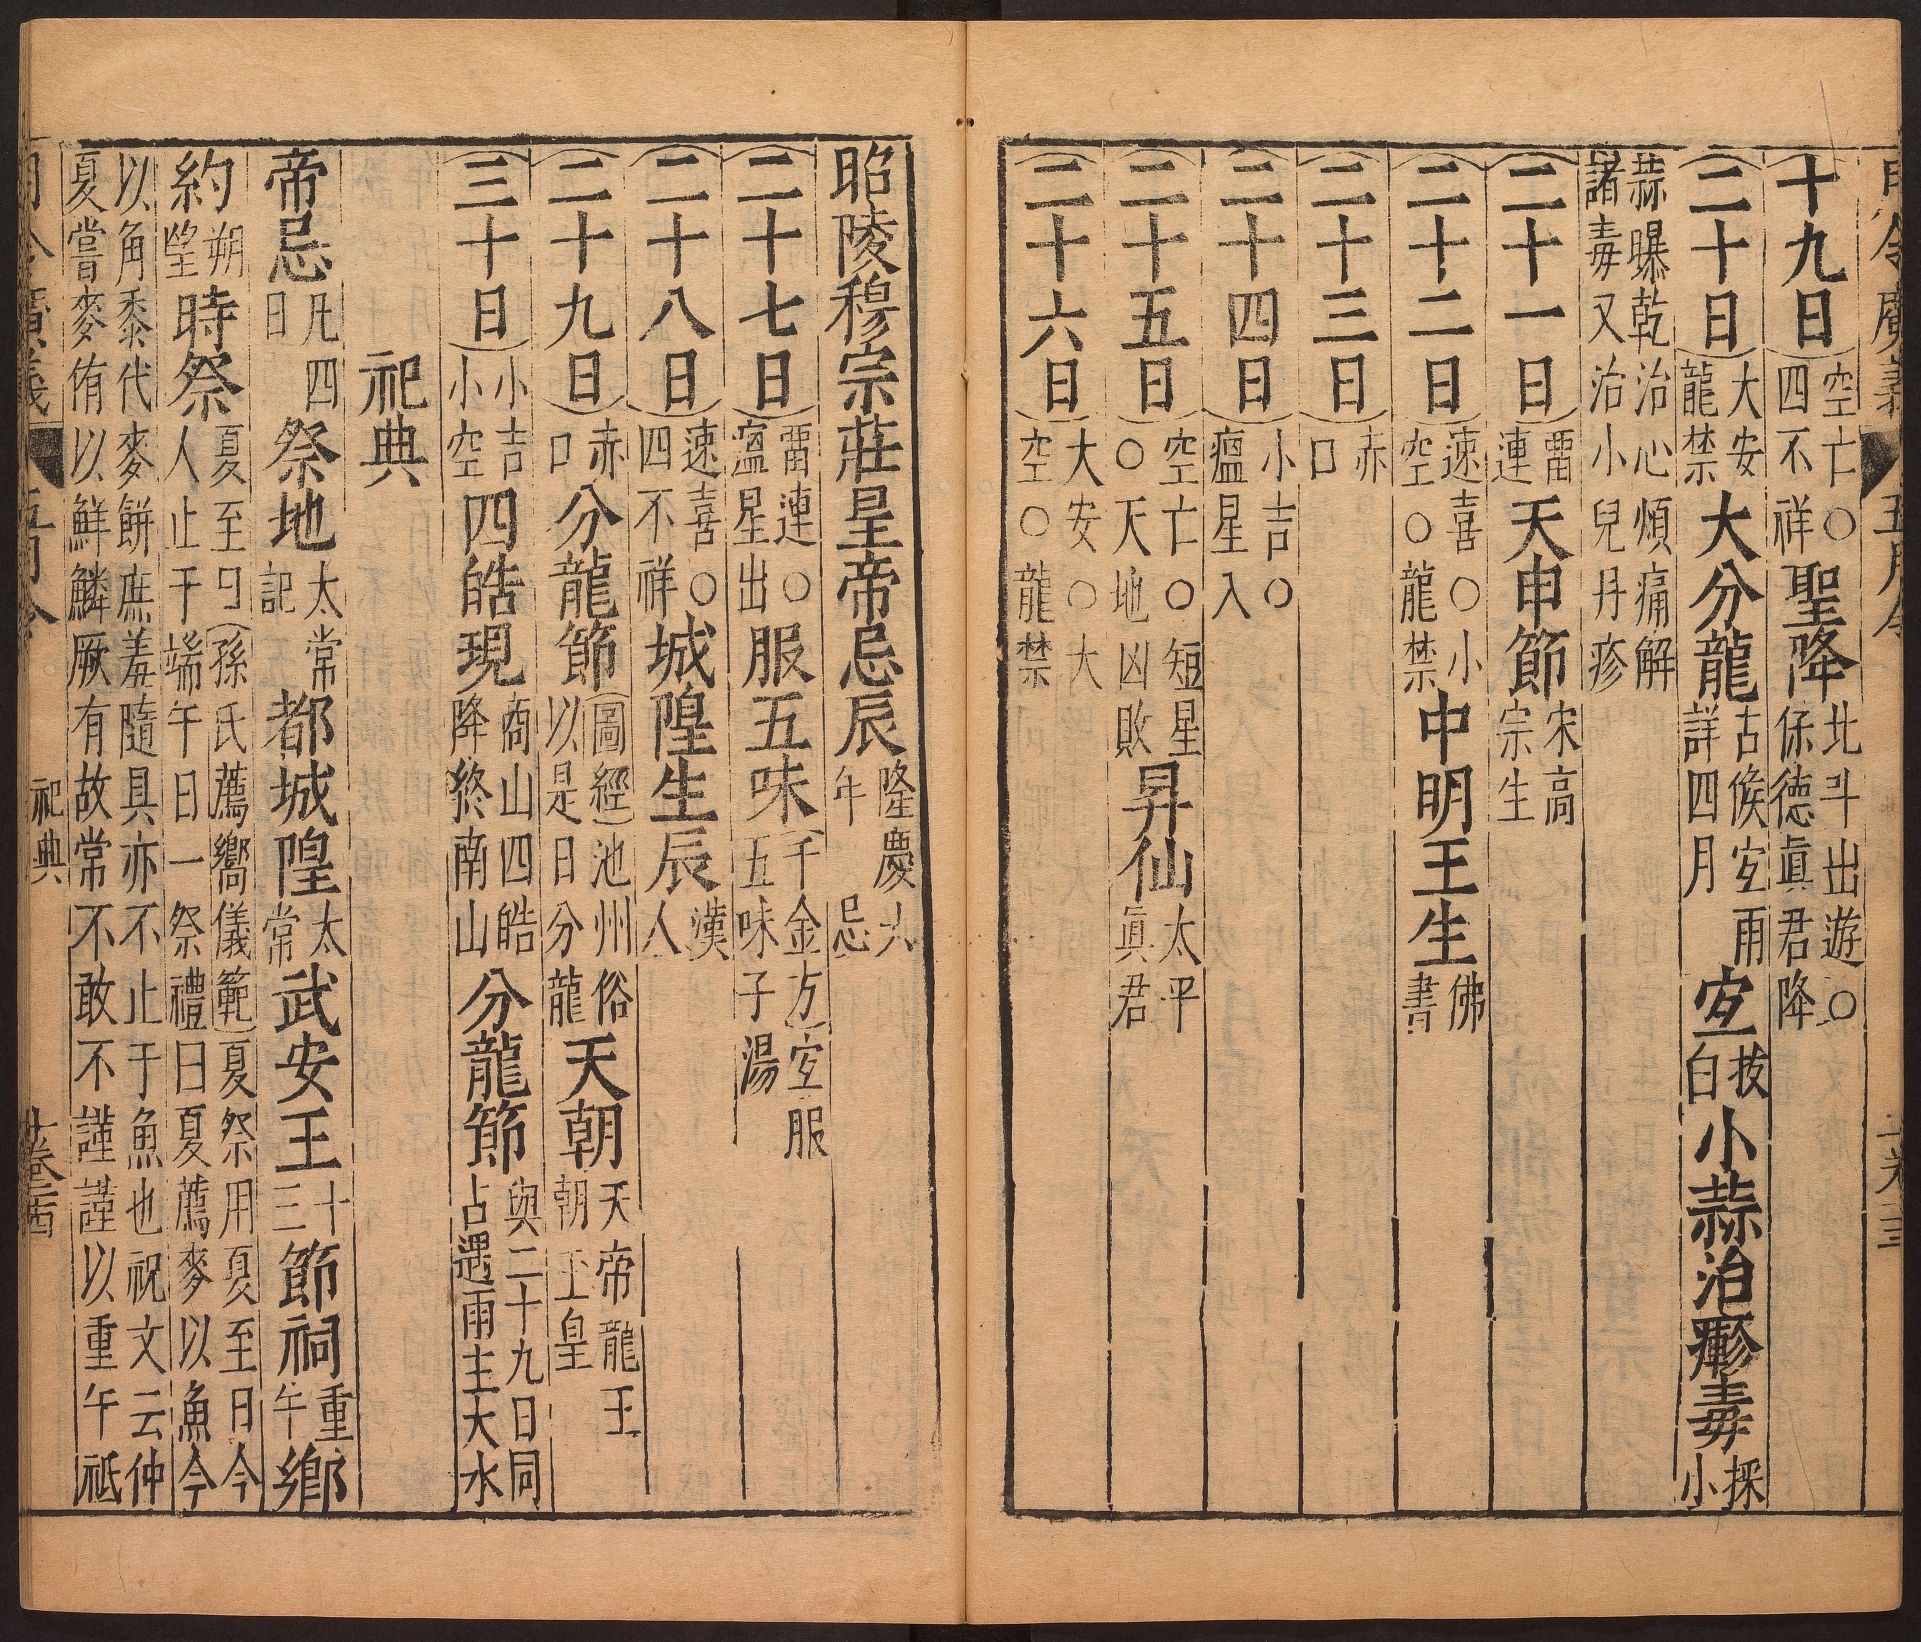 月令廣義 五月令 卷三
十九日 空亡○四不祥 聖降 北斗出遊○保德眞君降
二十日 大安龍禁 大分龍 古候宜雨詳四月 宜 拔白 小蒜治癥毒 採小
蒜曝乾治心煩痛解諸毒又治小兒丹疹
二十一日 畱連 天申節 宋高宗生
二十二日 速喜○小空○龍禁 中明王生 佛書
二十三日 赤口
二十四日 小吉○瘟星入
二十五日 空亡○短星○天地凶敗 昇仙 太平眞君
二十六日 大安○大空○龍禁
昭陵穆宗莊皇帝忌辰 隆慶六年忌
二十七日 畱連○瘟星出 服五味 千金方宜服五味子湯
二十八日 速喜○四不祥 城隍生辰 漢人
二十九日 赤口 分龍節 圖經池州俗以是日分龍 天朝 天帝龍王朝玉皇
三十日 小吉小空 四皓現 商山四皓降終南山 分龍節 與二十九日同占遇雨主大水
祀典
帝忌 凡四日 祭地 太常記 都城隍 太常 武安王 十三 節祠 重午 鄉
約 朔望 時祭 夏至曰孫氏薦嚮儀範夏祭用夏至日今人止于端午日一祭禮曰夏薦麥以魚今
以角黍代麥餅庶羞隨具亦不止于魚也祝文云仲夏嘗麥侑以鮮鱗厥有故常不敢不謹謹以重午祗
月令廣義 五月令 祀典 卷 廿四